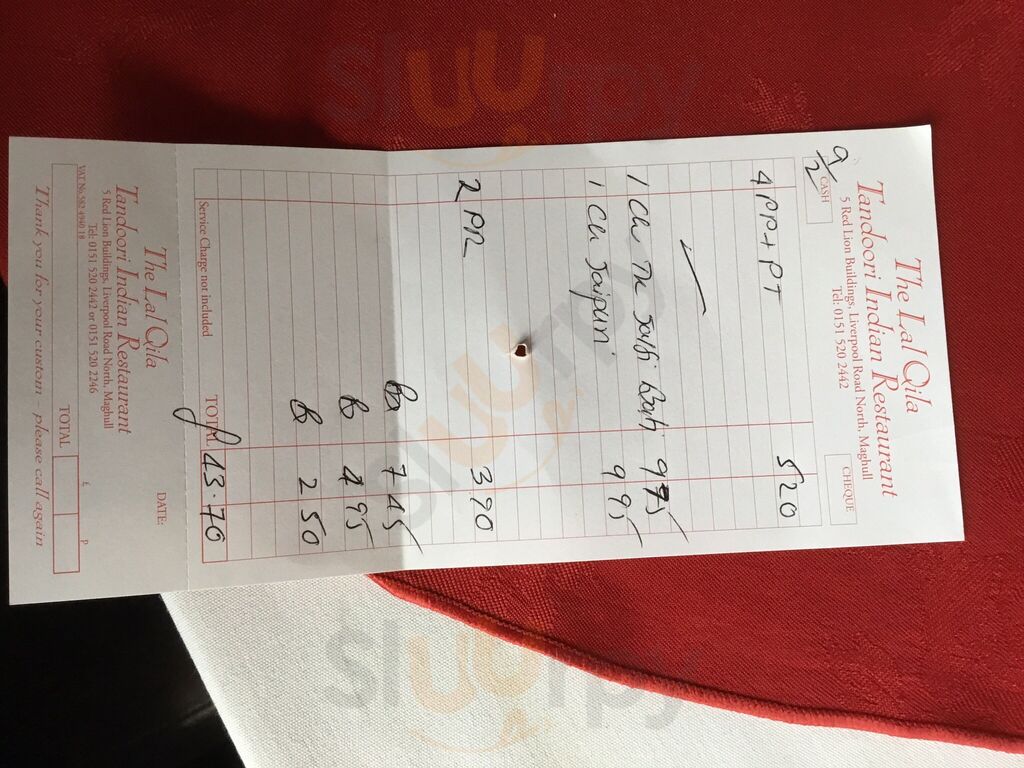 The Lal Qila
Tandoori Indian Restaurant
5 Red Lion Buildings, Liverpool Road North, Maghull
Tel: 0151 520 2442
9/2
CASH
CHEQUE
4 PP + PT 5 20
1 Ch Tk Jalfi 9 75
1 Ch Jaipuri 9 95
2 PR 3 90
7 45
4 95
2 50
Service Charge not included
TOTAL £ 43.70
The Lal Qila
Tandoori Indian Restaurant
5 Red Lion Buildings, Liverpool Road North, Maghull
Tel: 0151 520 2442 or 0151 520 2246
VAT No.
DATE:
£ P
TOTAL
Thank you for your custom - please call again
sluurpy
sluurpy
sluurpy